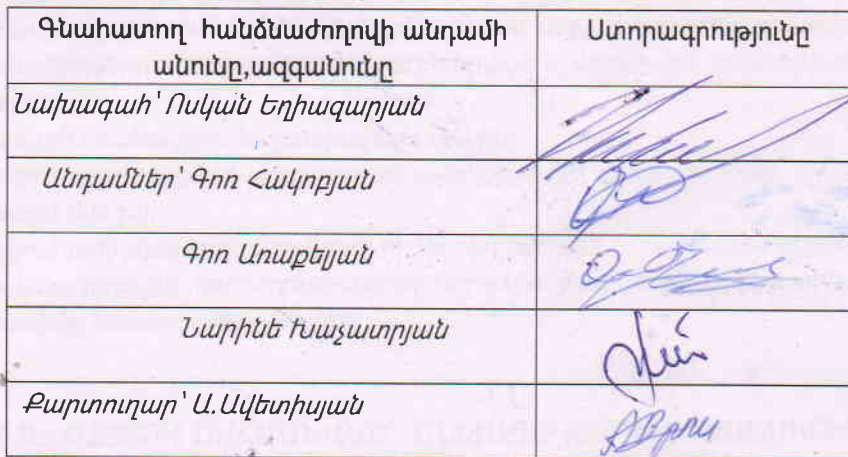 Գնահատող հանձնաժողովի անդամի Ստորագրությունը
անունը,ազգանունը
Նախագահ՝ Ոսկան Եղիազարյան
Անդամներ՝ Գոռ Հակոբյան
Գոռ Առաքելյան
Նարինե Խաչատրյան
Քարտուղար՝ Ա.Ավետիսյան